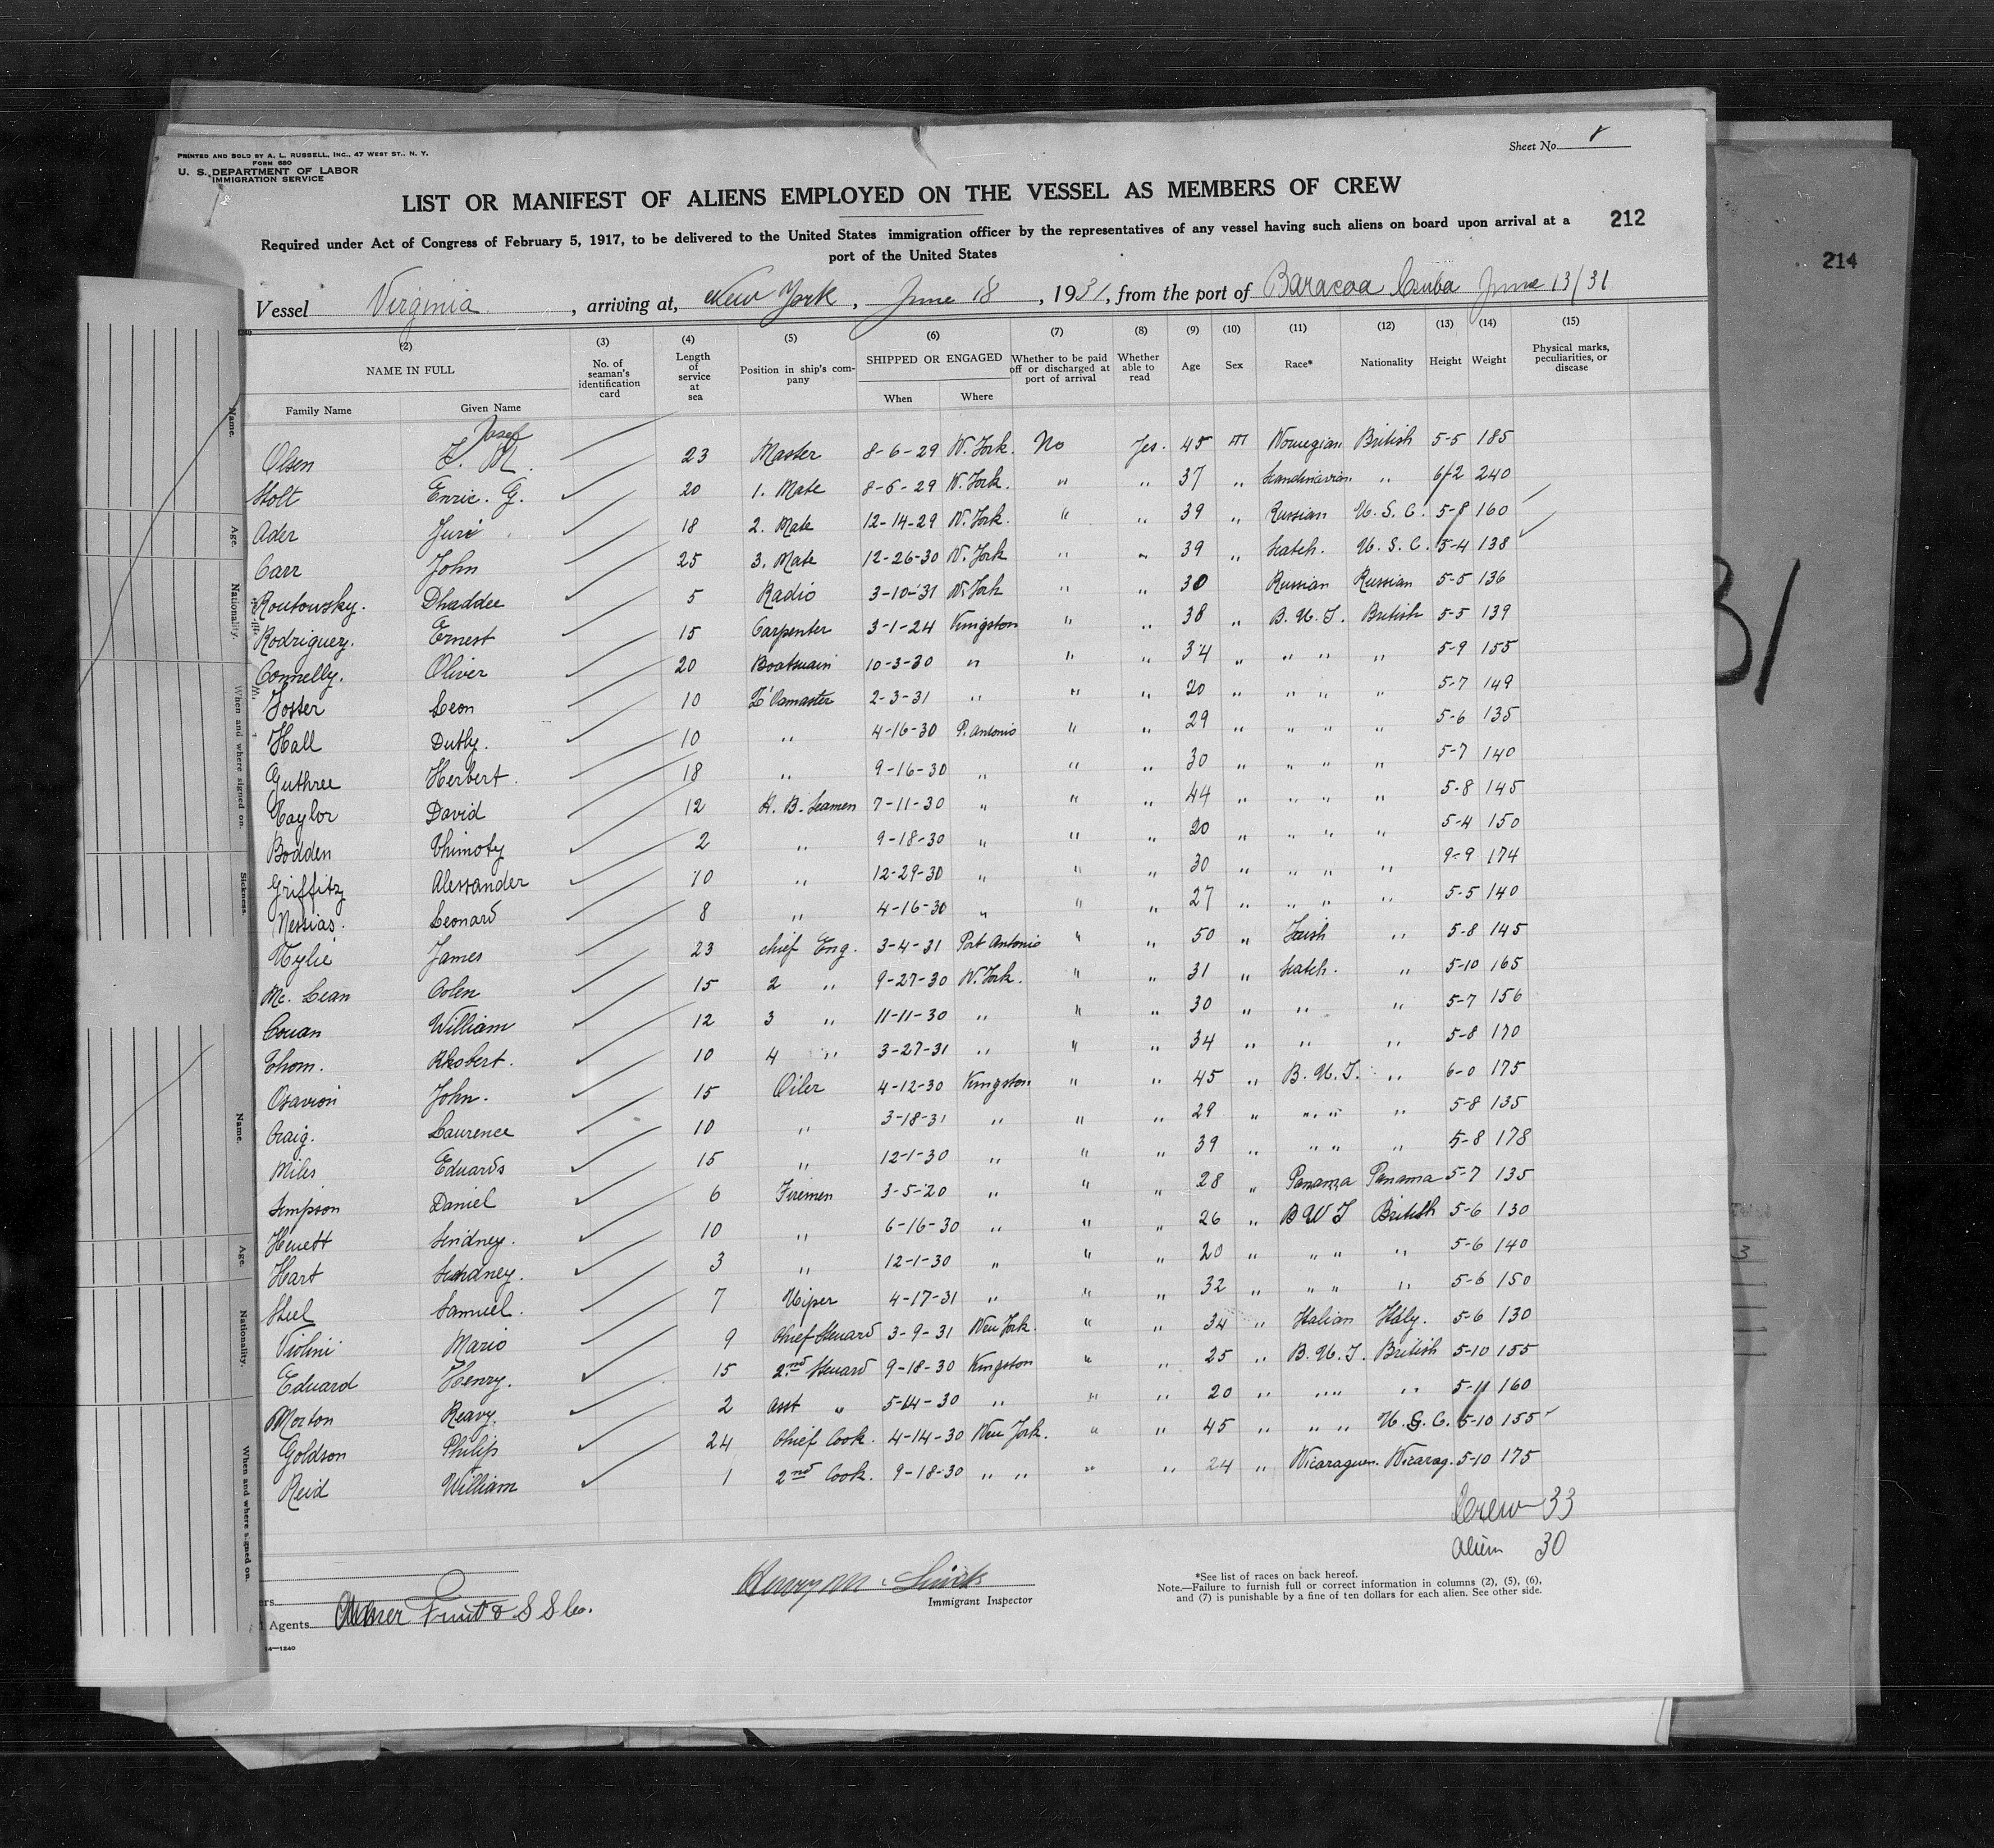 PRINTED AND SOLD BY A. L. RUSSELL, INC., 47 WEST ST., N. Y.
FORM 680
U. S. DEPARTMENT OF LABOR
IMMIGRATION SERVICE
Sheet No.
LIST OR MANIFEST OF ALIENS EMPLOYED ON THE VESSEL AS MEMBERS OF CREW
212
Required under Act of Congress of February 5, 1917, to be delivered to the United States immigration officer by the representatives of any vessel having such aliens on board upon arrival at a
port of the United States
214
Vessel Virginia, arriving at, New York, June 18, 1931, from the port of Baracoa Cuba June 13/31
(2) (3) (4) (5) (6) (7) (8) (9) (10) (11) (12) (13) (14) (15)
NAME IN FULL No. of seaman's identification card Length of service at sea Position in ship's company SHIPPED OR ENGAGED Whether to be paid off or discharged at port of arrival Whether able to read Age Sex Race* Nationality Height Weight Physical marks, peculiarities, or disease
Family Name Given Name When Where
Josef
Olsen J. M. 23 Master 8-6-29 N. York. No Yes. 45 m Norwegian British 5-5 185
Holt Enric. G. 20 1. Mate 8-6-29 N. York. " " 37 " Scandinavian " 6-2 240
Ader Juri 18 2. Mate 12-14-29 N. York. " " 39 " Russian U. S. C. 5-8 160
Carr John 25 3. Mate 12-26-30 N. York " " 39 " Scotch. U. S. C. 5-4 138
Routowsky. Dhaddee 5 Radio 3-10-31 N. York " " 30 Russian Russian 5-5 136
Rodriguez. Ernest 15 Carpenter 3-1-24 Kingston " " 38 " B. W. I. British 5-5 139
Connelly. Oliver 20 Boatswain 10-3-30 " " " 34 " " " " 5-9 155
Foster Leon 10 2-3-31 " " " 20 " " " " 5-7 149
Hall Dutly. 10 " 4-16-30 P. Antonio " " 29 " " " " 5-6 135
Guthree Herbert. 18 " 9-16-30 " " " 30 " " " " 5-7 140
Taylor David 12 A. B. Seamen 7-11-30 " " " 44 " " " " 5-8 145
Bodden Thimoty 2 " 9-18-30 " " " 20 " " " " 5-4 150
Griffitz Alessander 10 " 12-29-30 " " " 30 " " " " 9-9 174
Messias. Leonard 8 " 4-16-30 " " " 27 " " " " 5-5 140
Wylie James 23 chief Eng. 3-4-31 Port Antonio " " 50 " Irish " 5-8 145
Mc. Lean Colen 15 2 " 9-27-30 N. York. " " 31 " Scotch. " 5-10 165
Couan William 12 3 " 11-11-30 " " " 30 " " " 5-7 156
Thom. Robert. 10 4 " 3-27-31 " " " 34 " " " 5-8 170
Osavion John. 15 Oiler 4-12-30 Kingston " " 45 " B. W. I. " 6-0 175
Craig. Laurence 10 " 3-18-31 " " " 29 " " " " 5-8 135
Miles Eduards 15 " 12-1-30 " " " 39 " " " " 5-8 178
Simpson Daniel 6 Firemen 3-5-20 " " " 28 " Panama Panama 5-7 135
Heuett Sindney. 10 " 6-16-30 " " " 26 " B W I British 5-6 130
Hart Sindney. 3 " 12-1-30 " " " 20 " " " " 5-6 140
Steel Samuel. 7 Wiper 4-17-31 " " " 32 " " " 5-6 150
Violini Mario 9 Chief Steuard 3-9-31 New York. " " 34 " Italian Italy. 5-6 130
Eduard Henry. 15 2nd Steuard 9-18-30 Kingston " " 25 " B. W. I. British 5-10 155
Morton Reavy. 2 asst " 5-14-30 " " " 20 " " " " 5-11 160
Goldson Philip 24 Chief Cook. 4-14-30 New York. " " 45 " " " U. S. C. 5-10 155
Reid William 1 2nd Cook. 9-18-30 " " " " 24 " Nicaraguen. Nicarag. 5-10 175
Crew 33
Alien 30
Immigrant Inspector
*See list of races on back hereof.
Note.—Failure to furnish full or correct information in columns (2), (5), (6),
and (7) is punishable by a fine of ten dollars for each alien. See other side.
Agents Fruit & S S Co.
14—1240
Name.
Age.
Nationality.
When and where signed on.
Sickness.
Name.
Age.
Nationality.
When and where signed on.
31